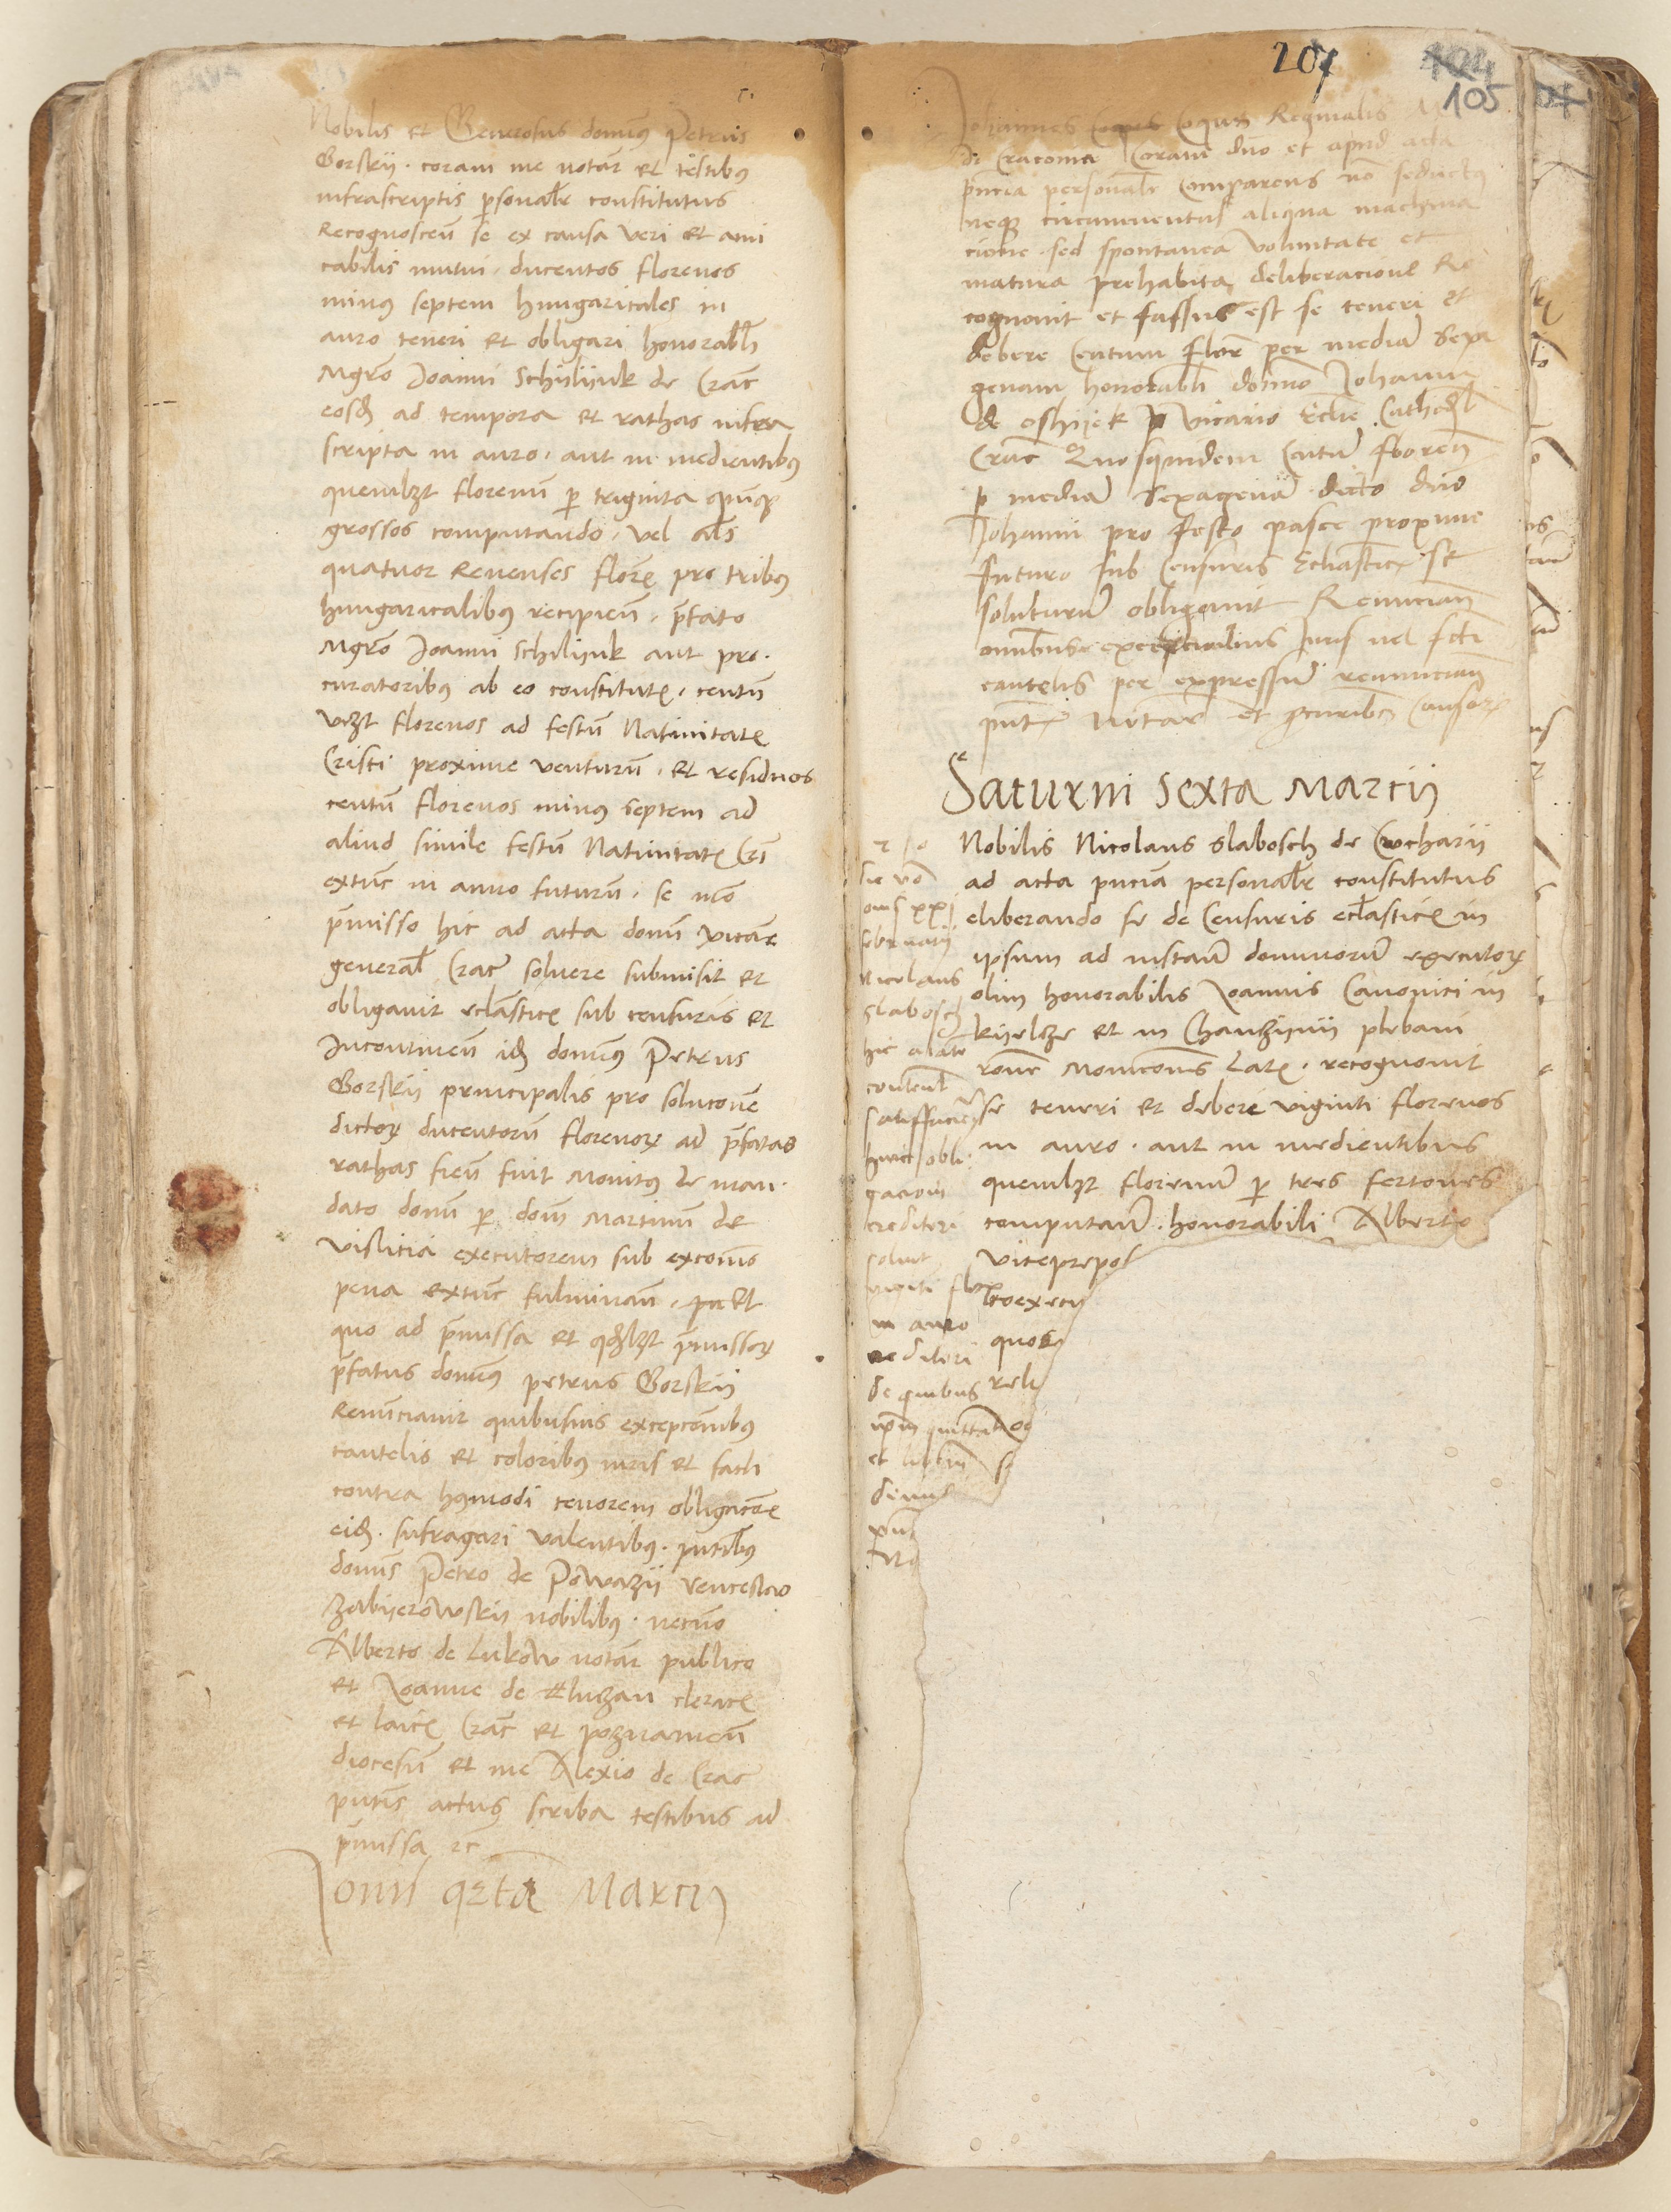 Nobilis et Generosus domus Petrus
Gorskii . coram me notar et testibus
infrascriptis psonalr constitutus
Recognoscen se ex causa veri et ami
cabilis mutui . ducentos florenos
minus septem hungaricales in
auro teneri et obligari honorabli
Mgro Joanni Schilijnk de Crac
eosd ad tempora et rathas infra
scripta in auro . aut in medientibus
quemlzt florenu p triginta quinq
grossos computando . vel als
quatuor Renenses flore pro tribus
hungaricalibus recipien . pfato
Mgro Joanni Schilijnk aut pro .
curatoribus ab eo constitute . centu
vizt florenos ad festu Nativitate
Cristi proxime venturu . et residuos
centu florenos minus septem ad
aliud simile festu Nativitate Cri
extunc in anno futuru . se mo
pmisso hic ad acta domi vicare
general Crac solvere submisit et
obligavit eclastice sub censuris et
Incontinen id domus Petrus
Gorskii principalis pro solucone
dictor ducentoru florenor ad pfatas
rathas fien fuit Monitus de man .
dato domi p dom Martinu de
vislicia executorem sub excomis
pena extunc fulminan . Et
quo ad pmissa et qdlzt pmissor
pfatus domus petrus Gorskii
Renunciavit quibusvis excepcoibus
cautelis et coloribus iuris et facti
contra huiusmodi tenorem obligacoe
eid . sufragari valentibus . pntibus
domis Petro de Powazii venceslao
Zabijerowskii nobilibus . necno
Alberto de Lukow notar publico
et Joanne de Kluzan clerice
et laice Crac et poznanien
diocesu et me Alexio de Crac
pntis actus scriba testibus ad
pmissa 2c
Jovis qrta Marcij
207
105
Johannes Coqus Reginalis
de Cracovia Coram dno et apud acta
pncia personalr Comparens no seductus
neque circumventus aliqua machina
cione . sed spontanea voluntate et
matura prehabita deliberacione Re
cognovit et fassus est se teneri et
debere Centum flor per media Sexa
genam honorabli domino Johanni
de oshijek vicario Eclie Cathedrl
Crac Quosquidem Centu floren
p media Sexagena dicto dno
Johanni pro festo pasce proxime
futuro sub Censuris Eclastice se
soluturu obligavit Renuncian
omnibus excepcionibus Juris vel fcti
cautelis per expressu renuncian
pnte Notar et pcuribus Causar
Saturni sexta Marcij
Nobilis Nicolaus Slabosch de Cocharii
ad acta pncia personalr constitutus
eliberando se de Censuris eclastice in
ipsum ad instan dominoru executor
olim honorabilis Joannis Canonici in
kijelcze et in Chanzijnii plebani
rone Monicois Late . recognovit
se teneri et debere viginti florenos
in auro . aut in medientibus
quemlzt florenu p tres fertones
computan . honorabili Alberto
vicepreposi
coexecu
quos
reli
s
sic vo
ovis xxj
februarij
Nicolaus
Slabosch
hic
content
satisfacien
huic obli
gaconi
creditori
solvit
viginti flor
in auro
creditori
de quibus
ipm quittat
et